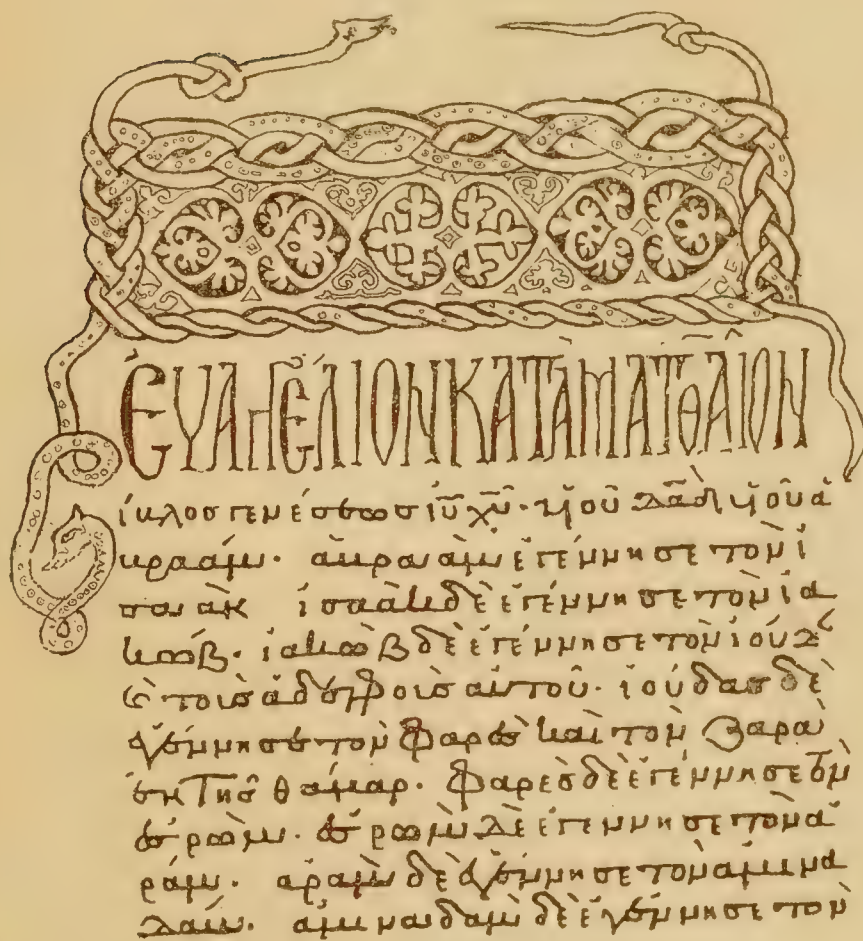 ΕΥΑΓΓΕΛΙΟΝ ΚΑΤΑ ΜΑΤΘΑΙΟΝ
ίκλοσ γενέσεωσ ιῦ χῦ· υἱοῦ δᾱδ υἱοῦ ἀ
κραάμ· ἀκραὰμ ἐγέννησε τὸν ἰ
σαὰκ ἰσαὰκ δὲ ἐγέννησε τὸν ἰα
κώβ· ἰακὼβ δὲ ἐγέννησε τὸν ἰούδ
τοισ ἀδελφοισ αὐτοῦ· ἰούδασ δὲ
ἐγέννησε τὸν φαρὲσ καὶ τὸν ζαρὰ
ἐκ τῆσ θάμαρ· φαρεσ δὲ ἐγέννησε τὸν
ἐσρώμ· ἐσρωμ δὲ ἐγέννησε τὸν ἀ
ράμ· ἀραμ δὲ ἐγέννησε τὸν ἀμινα
δάμ· ἀμιναδαμ δὲ ἐγέννησε τὸν